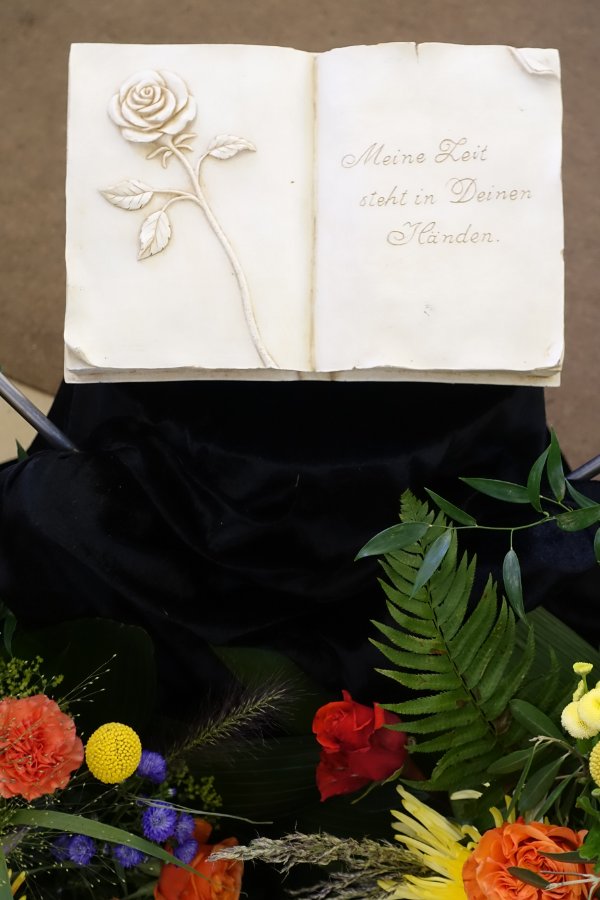 Meine Zeit
steht in Deinen
Händen.